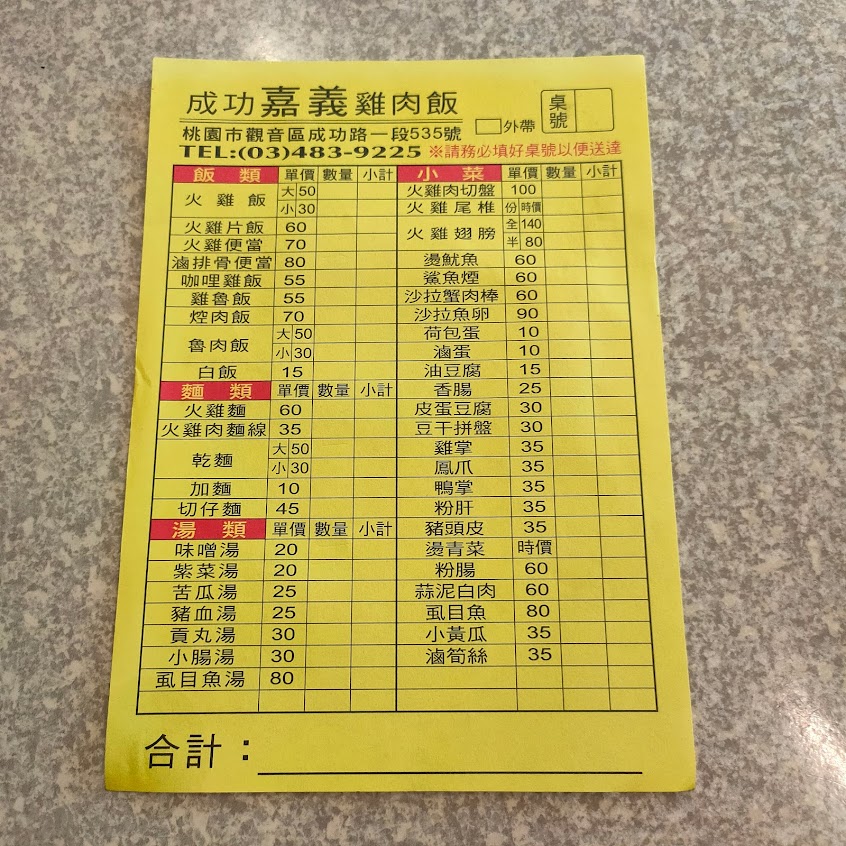 成功嘉義雞肉飯
桃園市觀音區成功路一段535號
外帶
桌號
TEL:(03)483-9225 ※請務必填好桌號以便送達
飯類 單價 數量 小計
火雞飯 大 50
小 30
火雞片飯 60
火雞便當 70
滷排骨便當 80
咖哩雞飯 55
雞魯飯 55
焢肉飯 70
魯肉飯 大 50
小 30
白飯 15
麵類 單價 數量 小計
火雞麵 60
火雞肉麵線 35
乾麵 大 50
小 30
加麵 10
切仔麵 45
湯類 單價 數量 小計
味噌湯 20
紫菜湯 20
苦瓜湯 25
豬血湯 25
貢丸湯 30
小腸湯 30
虱目魚湯 80
小菜 單價 數量 小計
火雞肉切盤 100
火雞尾椎 份 時價
火雞翅膀 全 140
半 80
燙魷魚 60
鯊魚煙 60
沙拉蟹肉棒 60
沙拉魚卵 90
荷包蛋 10
滷蛋 10
油豆腐 15
香腸 25
皮蛋豆腐 30
豆干拼盤 30
雞掌 35
鳳爪 35
鴨掌 35
粉肝 35
豬頭皮 35
燙青菜 時價
粉腸 60
蒜泥白肉 60
虱目魚 80
小黃瓜 35
滷筍絲 35
合計：